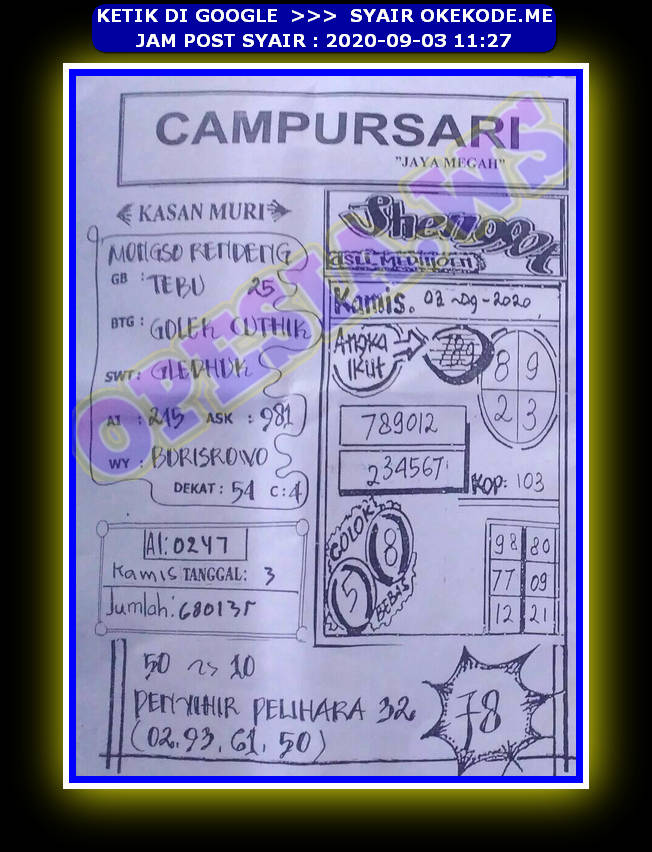 KETIK DI GOOGLE >>> SYAIR OKEKODE.ME
JAM POST SYAIR : 2020-09-03 11:27
CAMPURSARI
"JAYA MEGAH"
KASAN MURI
MONGSO RENDENG
GB : TEBU 25
BTG : GOLEK CUTHIK
SWT : GLEDHUK
AI : 245 ASK : 981
WY : BORISROWO
DEKAT : 54 C : 4
AI : 0247
Kamis TANGGAL : 3
Jumlah : 680135
ASLI
Kamis. 03
2020
ANGKA IKUT
789
8 9
2 3
789012
234567
KOP : 103
GOLOK
5 8
BEBAS
98 80
77 09
12 21
50 ~> 10
PENYIHIR PELIHARA 32
(02.93.61.50)
78
OPESIA.WS